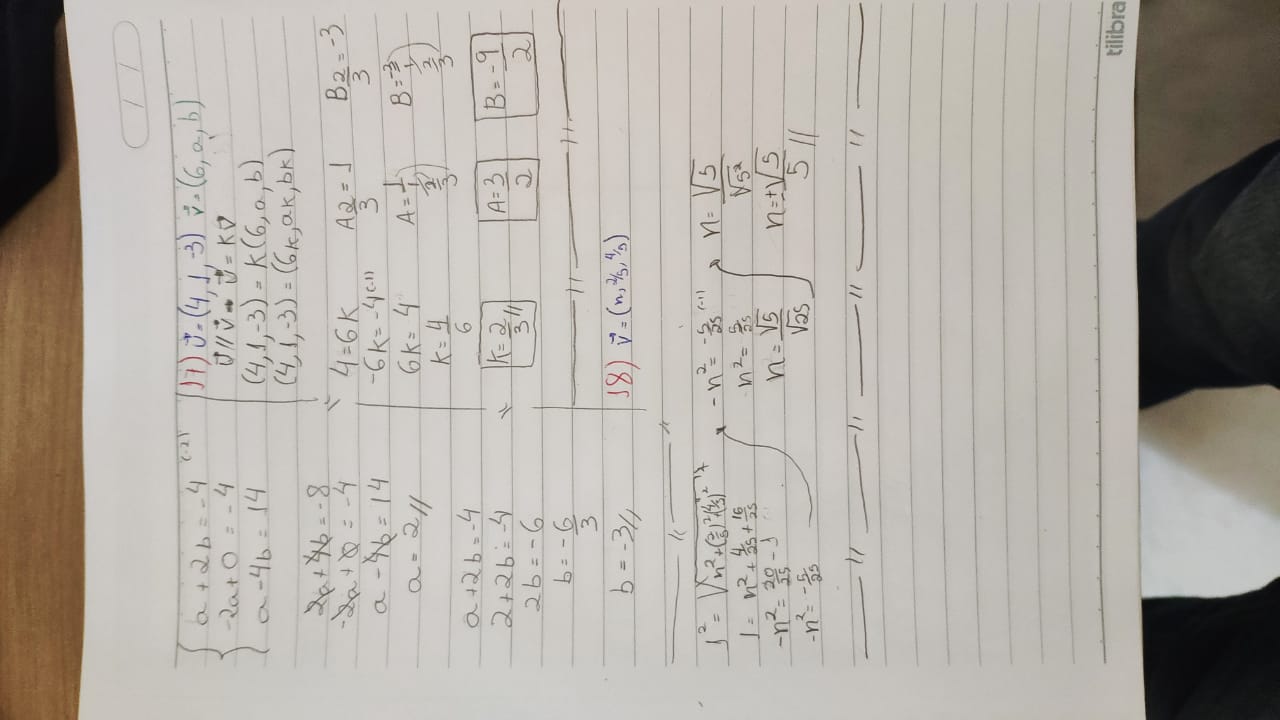 a + 2b = -4 (-2)
-2a + 0 = -4
a - 4b = 14
2a + 4b = -8
-2a + 0 = -4
a - 4b = 14
a = 2//
a + 2b = -4
2 + 2b = -4
2b = -6
b = -6/3
b = -3//
17) u⃗ = (4, 1, -3) v⃗ = (6, a, b)
u⃗ // v⃗ → u⃗ = Kv⃗
(4, 1, -3) = K(6, a, b)
(4, 1, -3) = (6K, aK, bK)
4 = 6K
-6K = -4 (-1)
6K = 4
K = 4/6
K = 2/3 //
A2/3 = 1
A = 1/1 / 2/3
A = 3/2
B2/3 = -3
B = -3/1 / 2/3
B = -9/2
18) v⃗ = (n, 2/5, 4/5)
1² = √n² + (2/5)² + (4/5)² ²
1 = n² + 4/25 + 16/25
-n² = 20/25 - 1
-n² = -5/25
-n² = -5/25 (-1)
n² = 5/25
n = √5/√25
n = √5/√5²
n = ±√5/5 //
tilibra